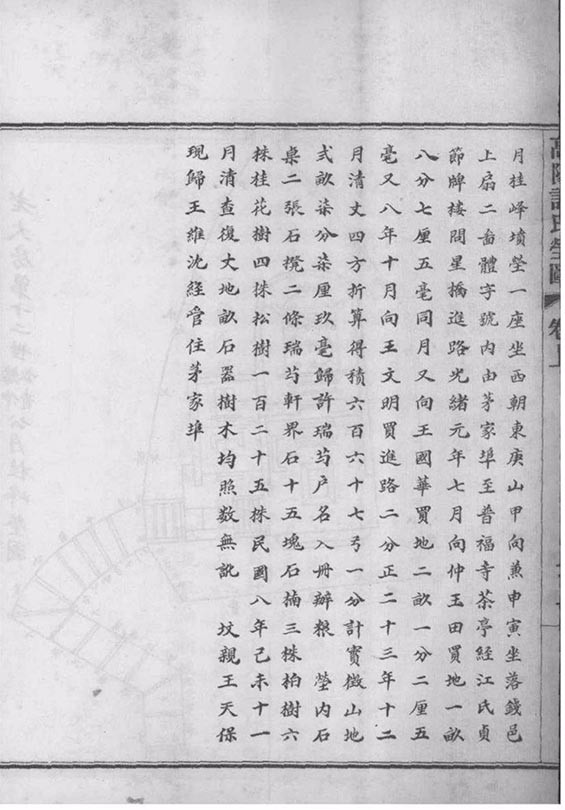 高陽許氏塋圖 卷上
月桂峰墳塋一座坐西朝東庚山甲向兼申寅坐落錢邑
上扇二啚體字號內由茅家埠至普福寺茶亭經江氏貞
節牌樓問星橋進路光緒元年七月向仲玉田買地一畝
八分七厘五毫同月又向王國華買地二畝一分二厘五
毫又八年十月向王文明買進路二分正二十三年十二
月清丈四方折算得積六百六十七弓一分計實徵山地
弍畝柒分柒厘玖毫歸許瑞芍户名入冊辦糧 塋內石
桌二張石櫈二條瑞芍軒界石十五塊石楠三株柏樹六
株桂花樹四株松樹一百二十五株民國八年己未十一
月清查復丈地畝石器樹木均照數無訛 坟親王天保
現歸王維沈經管住茅家埠